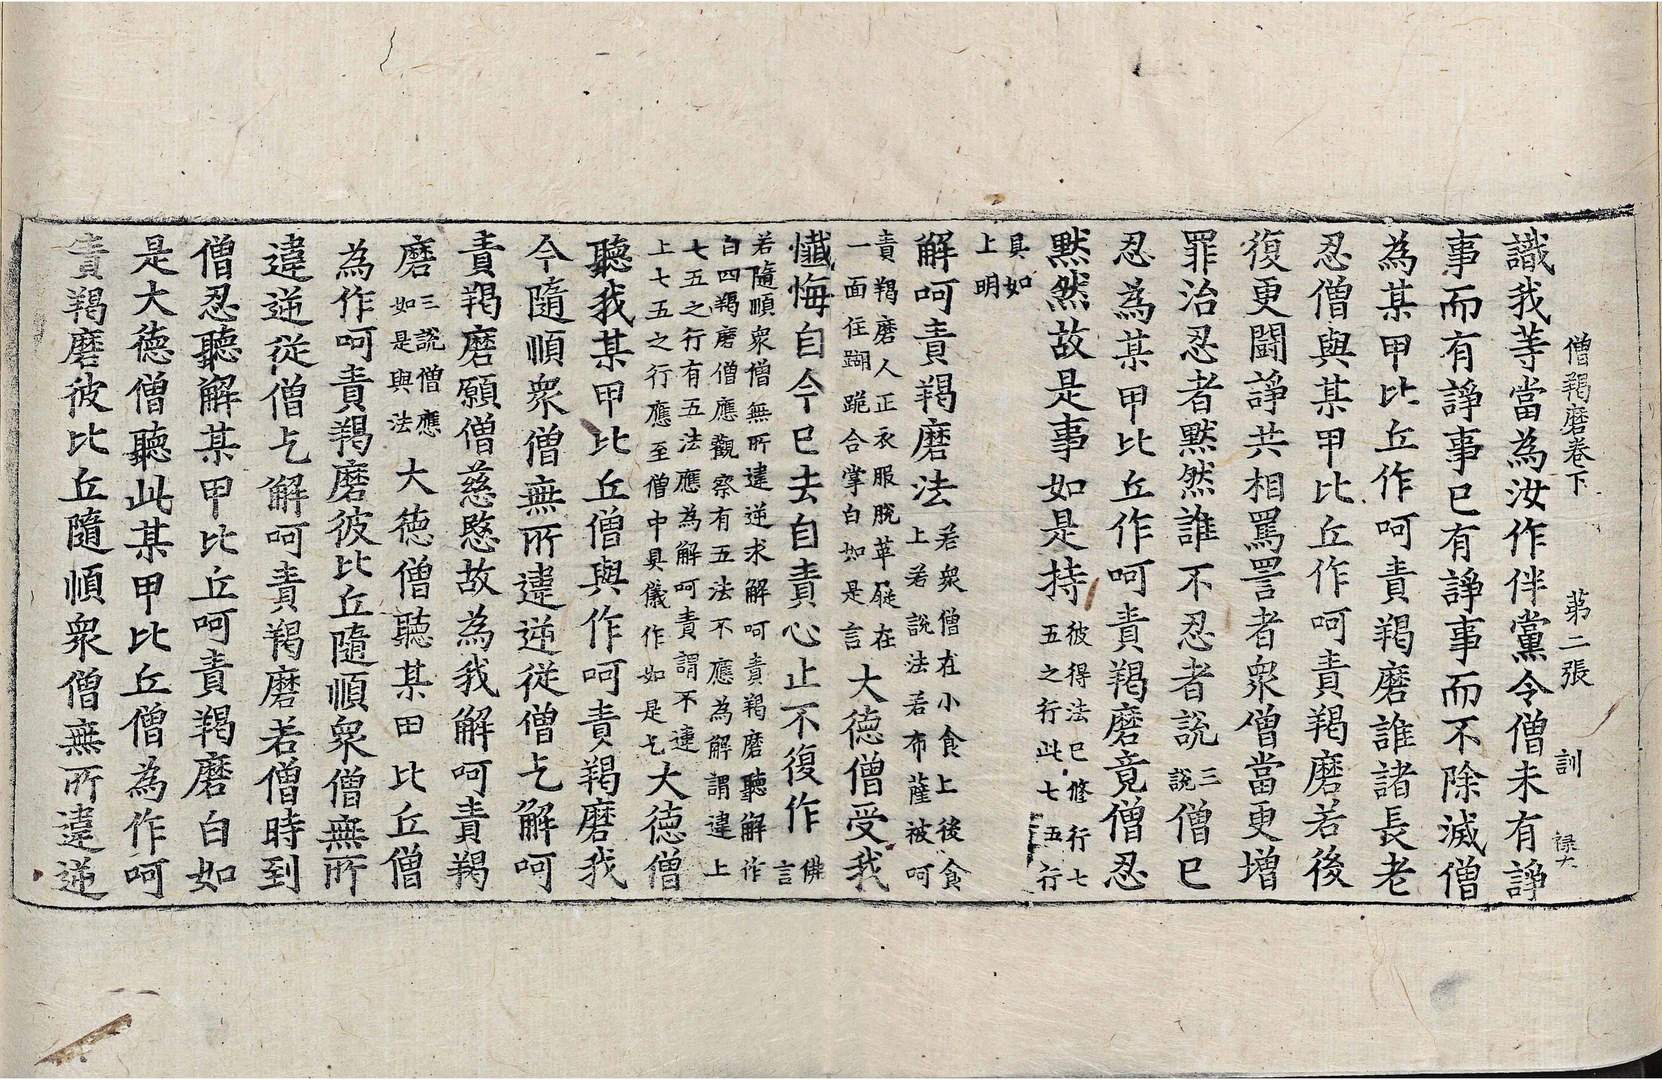 僧羯磨卷下 第二張 訓 祿大
識我等當為汝作伴黨令僧未有諍
事而有諍事已有諍事而不除滅僧
為某甲比丘作呵責羯磨誰諸長老
忍僧與某甲比丘作呵責羯磨若後
復更鬪諍共相罵詈者眾僧當更增
罪治忍者默然誰不忍者說三說僧已
忍為某甲比丘作呵責羯磨竟僧忍
默然故是事如是持彼得法已修行七五之行此七五行
具如上明
解呵責羯磨法若眾僧在小食上後食上若說法若布薩被呵
責羯磨人正衣服脫革屣在一面住䠒跪合掌白如是言大德僧受我
懺悔自今已去自責心止不復作佛言
若隨順眾僧無所違逆求解呵責羯磨聽解作白四羯磨僧應觀察有五法不應為解謂違上
七五之行有五法應為解呵責謂不違上七五之行應至僧中具儀作如是乞大德僧
聽我某甲比丘僧與作呵責羯磨我
今隨順眾僧無所違逆從僧乞解呵
責羯磨願僧慈愍故為我解呵責羯
磨三說僧應如是與法大德僧聽某田比丘僧
為作呵責羯磨彼比丘隨順眾僧無所
違逆從僧乞解呵責羯磨若僧時到
僧忍聽解某甲比丘呵責羯磨白如
是大德僧聽此某甲比丘僧為作呵
責羯磨彼比丘隨順眾僧無所違逆